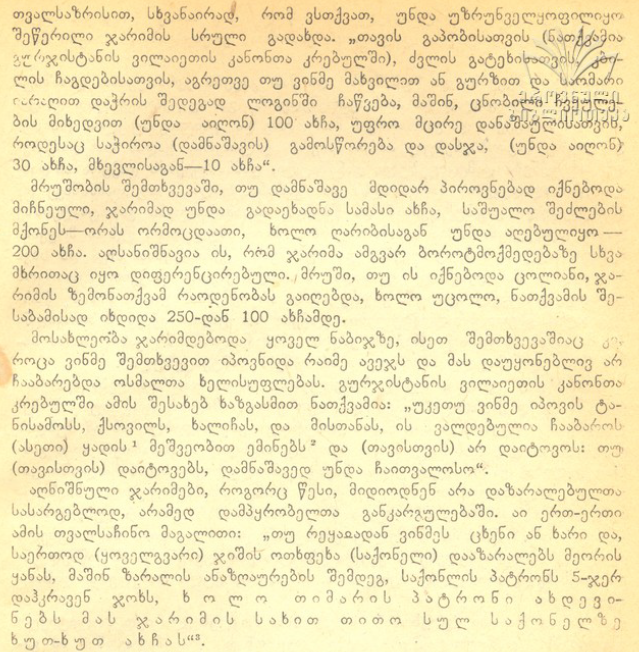 თვალსაზრისით, სხვანაირად, რომ ვსთქვათ, უნდა უზრუნველყოფილიყო
შეწერილი ჯარიმის სრული გადახდა. „თავის გაპობისათვის (ნათქვამია
გურჯისტანის ვილაიეთის კანონთა კრებულში), ძვლის გატეხისათვის, კბი-
ლის ჩაგდებისათვის, აგრეთვე თუ ვინმე მახვილით ან გურზით და საომარი
იარაღით დაჭრის შედეგად ლოგინში ჩაწვება, მაშინ, ცნობილი ჩვეულე-
ბის მიხედვით (უნდა აიღონ) 100 ახჩა, უფრო მცირე დანაშაულისათვის,
როდესაც საჭიროა (დამნაშავის) გამოსწორება და დასჯა, (უნდა აიღონ)
30 ახჩა, მხევლისაგან—10 ახჩა“.
მრუშობის შემთხვევაში, თუ დამნაშავე მდიდარ პიროვნებად იქნებოდა
მიჩნეული, ჯარიმად უნდა გადაეხადნა სამასი ახჩა, საშუალო შეძლების
მქონეს—ორას ორმოცდაათი, ხოლო ღარიბისაგან უნდა აღებულიყო —
200 ახჩა. აღსანიშნავია ის, რომ ჯარიმა ამგვარ ბოროტმოქმედებაზე სხვა
მხრითაც იყო დიფერენცირებული. მრუში, თუ ის იქნებოდა ცოლიანი, ჯა-
რიმის ზემონათქვამ რაოდენობას გაიღებდა, ხოლო უცოლო, ნათქვამის შე-
საბამისად იხდიდა 250-დან 100 ახჩამდე.
მოსახლეობა ჯარიმდებოდა ყოველ ნაბიჯზე, ისეთ შემთხვევაშიაც
როცა ვინმე შემთხვევით იპოვნიდა რაიმე ავეჯს და მას დაუყონებლივ არ
ჩააბარებდა ოსმალთა ხელისუფლებას. გურჯისტანის ვილაიეთის კანონთა
კრებულში ამის შესახებ ხაზგასმით ნათქვამია: „უკეთუ ვინმე იპოვის ტა-
ნისამოსს, ქსოვილს, ხალიჩას, და მისთანას, ის ვალდებულია ჩააბაროს
(ასეთი) ყადის¹ მეშვეობით ემინებს² და (თავისთვის) არ დაიტოვოს: თუ
(თავისთვის) დაიტოვებს, დამნაშავედ უნდა ჩაითვალოსო“.
აღნიშნული ჯარიმები, როგორც წესი, მიდიოდნენ არა დაზარალებულთა
სასარგებლოდ, არამედ დამპყრობელთა განკარგულებაში. აი ერთ-ერთი
ამის თვალსაჩინო მაგალითი: „თუ რეყაჲადან ვინმეს ცხენი ან ხარი და,
საერთოდ (ყოველგვარი) ჯიშის ოთხფეხა (საქონელი) დააზარალებს მეორის
ყანას, მაშინ ზარალის ანაზღაურების შემდეგ, საქონლის პატრონს 5-ჯერ
დაჰკრავენ ჯოხს, ხოლო თიმარის პატრონი ახდევი-
ნებს მას ჯარიმის სახით თითო სულ საქონელზე
ხუთ-ხუთ ახჩას“³.